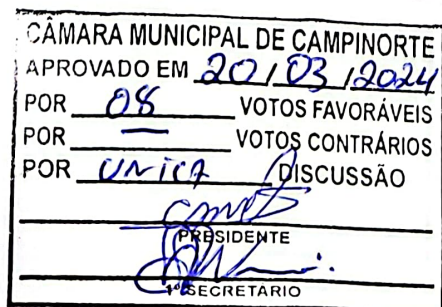 CÂMARA MUNICIPAL DE CAMPINORTE
APROVADO EM 20/03/2024
POR 08 VOTOS FAVORÁVEIS
POR — VOTOS CONTRÁRIOS
POR UNICA DISCUSSÃO
PRESIDENTE
1º SECRETÁRIO